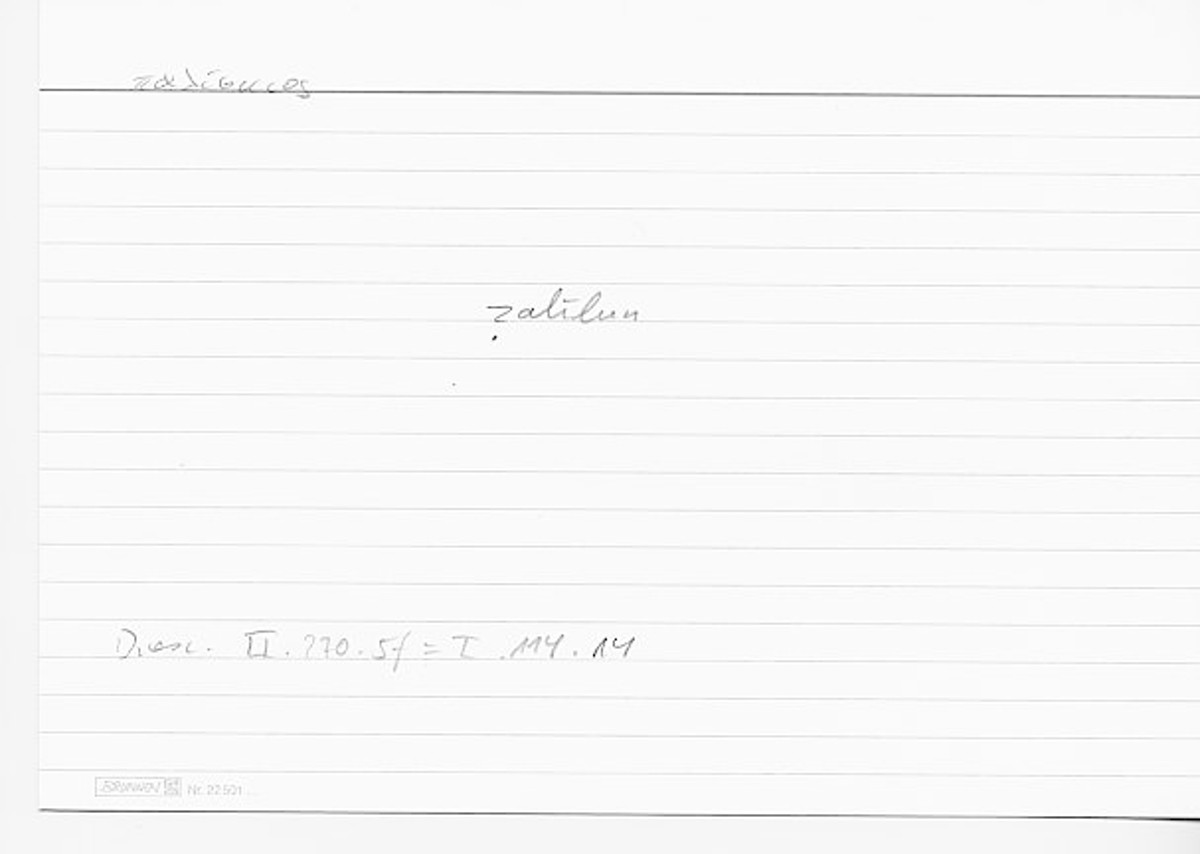 παλίουρος
zalīlun
Diosc. II. 270. 5f = I. 114. 14
BRUNNEN Nr. 22 501